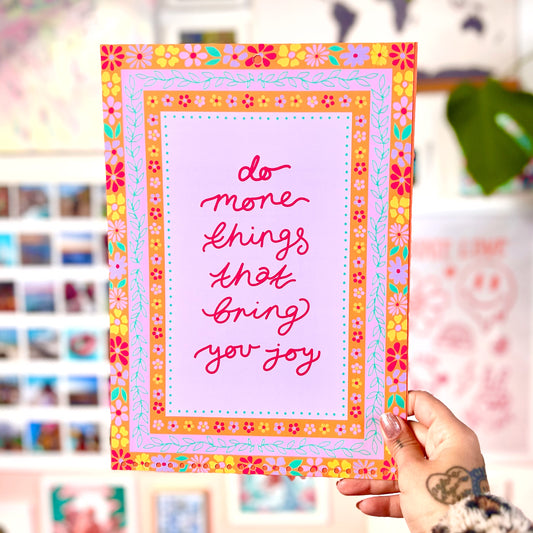 do
more
things
that
bring
you joy